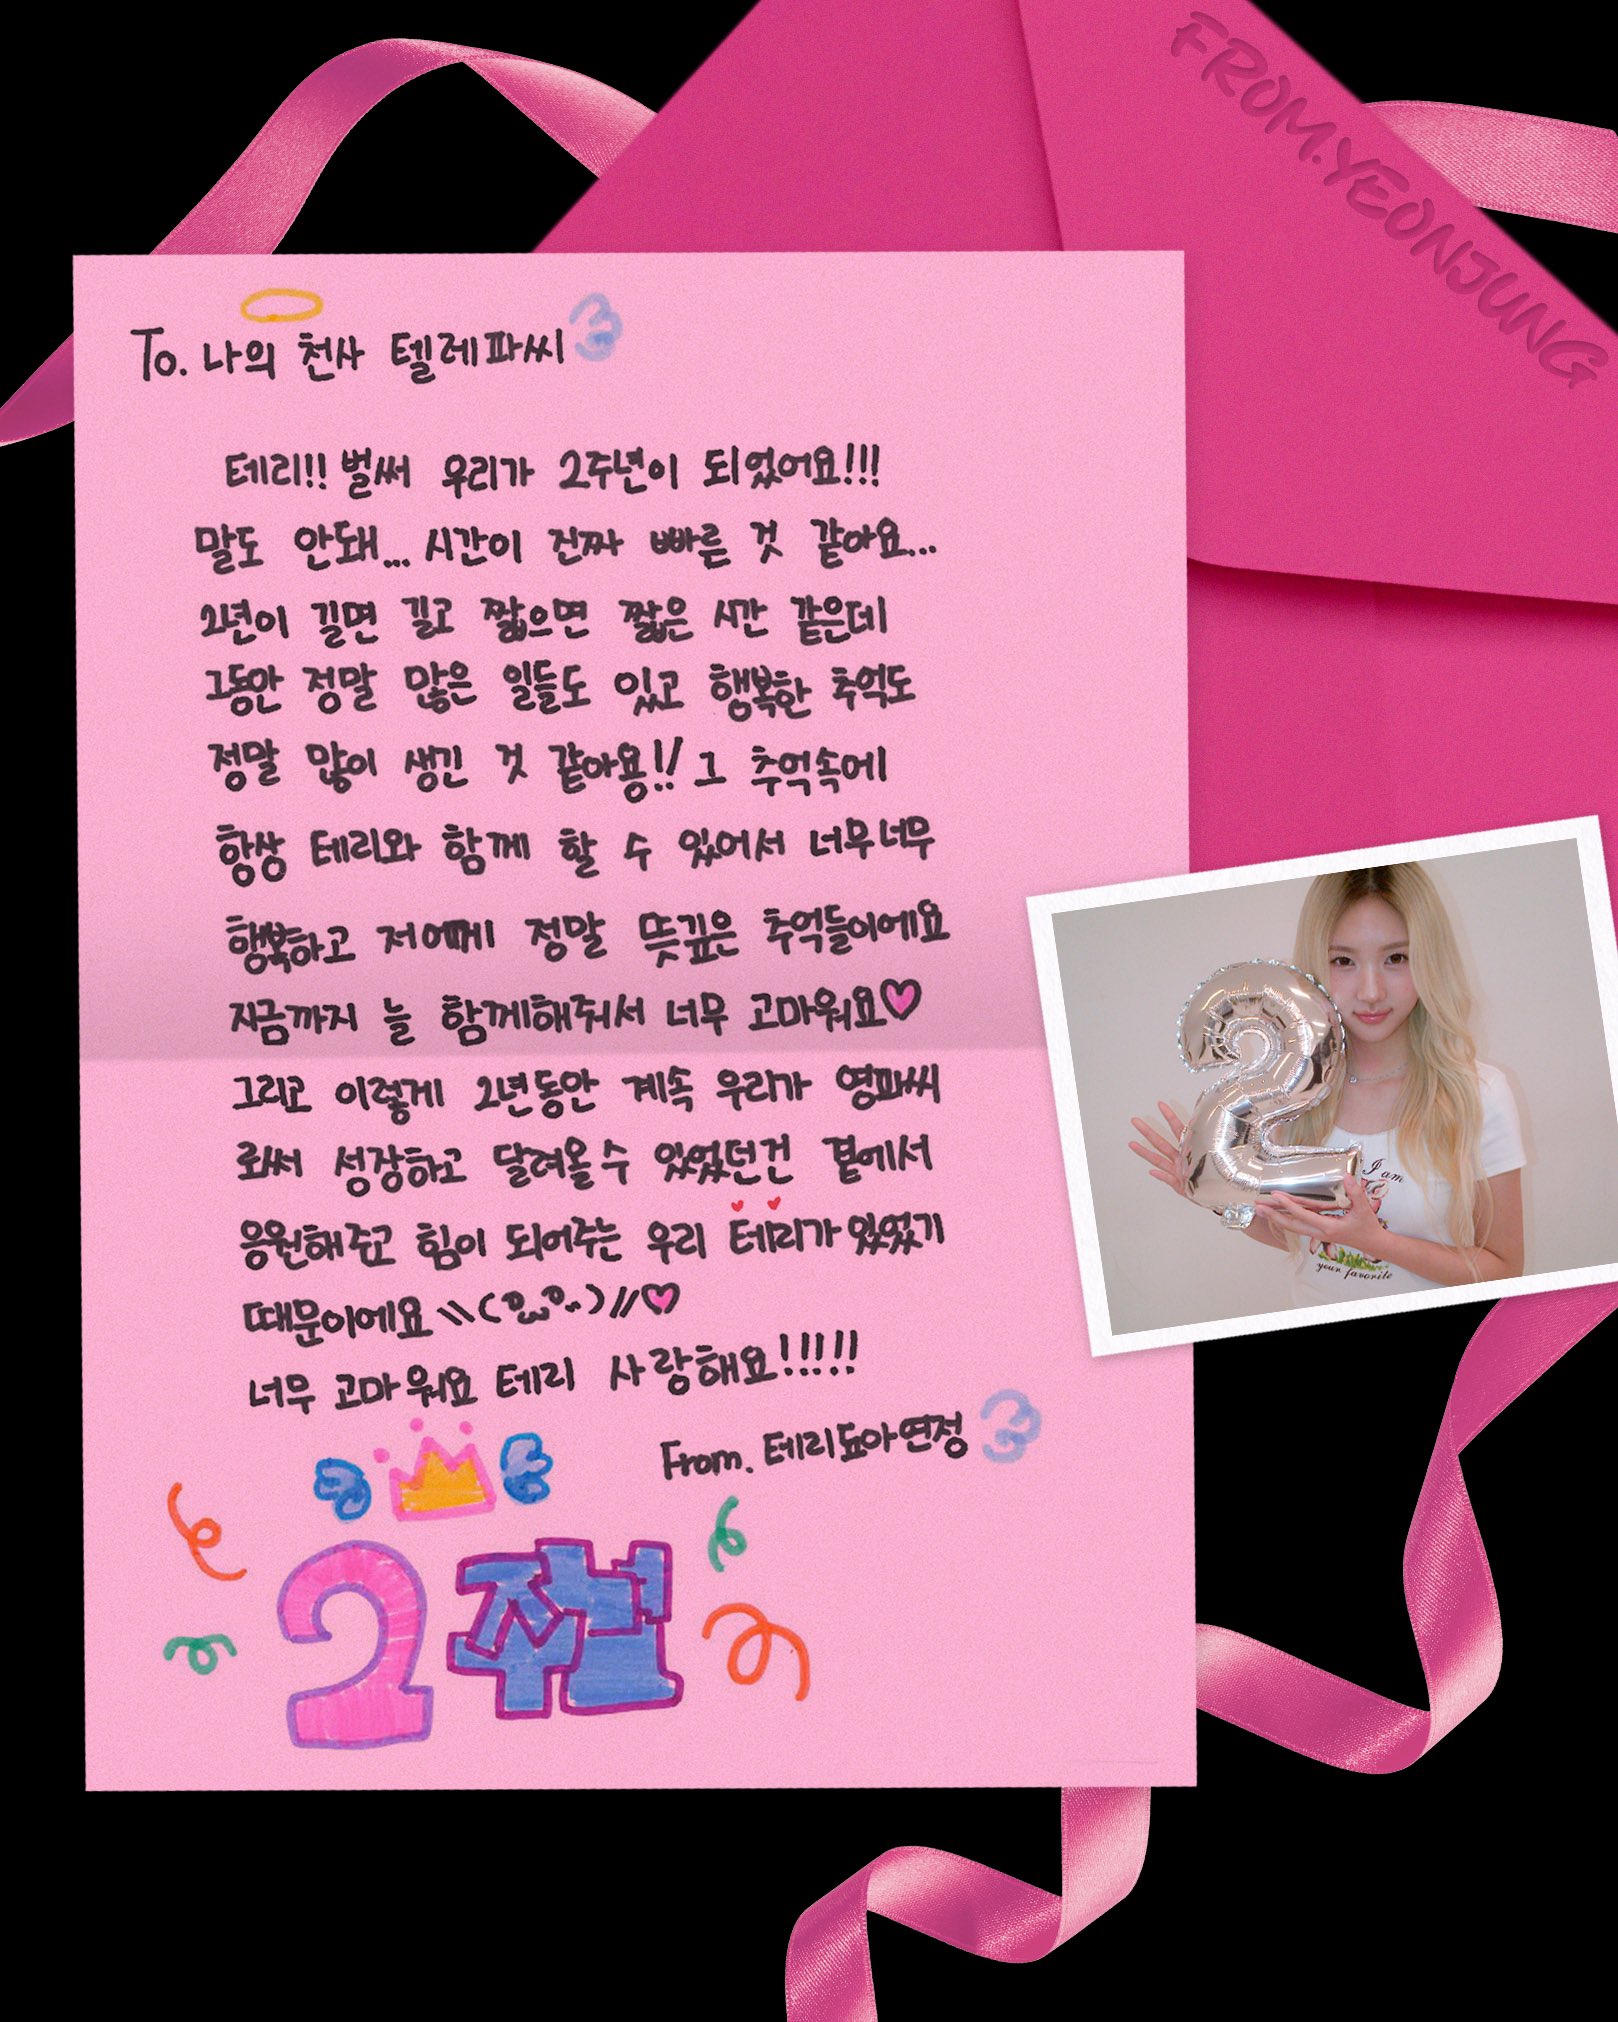 FROM.YEONJUNG
To. 나의 천사 텔레파씨
테리!! 벌써 우리가 2주년이 되었어요!!!
말도 안돼... 시간이 진짜 빠른 것 같아요...
2년이 길면 길고 짧으면 짧은 시간 같은데
그동안 정말 많은 일들도 있고 행복한 추억도
정말 많이 생긴 것 같아용!! 그 추억속에
항상 테리와 함께 할 수 있어서 너무너무
행복하고 저에게 정말 뜻깊은 추억들이에요
지금까지 늘 함께해줘서 너무 고마워요♡
그리고 이렇게 2년동안 계속 우리가 영파씨
로써 성장하고 달려올 수 있었던건 곁에서
응원해주고 힘이 되어주는 우리 테리가 있었기
때문이에요 \\( )//♡
너무 고마워요 테리 사랑해요!!!!!
From. 테리됴아연정
2주년
I am
your favorite